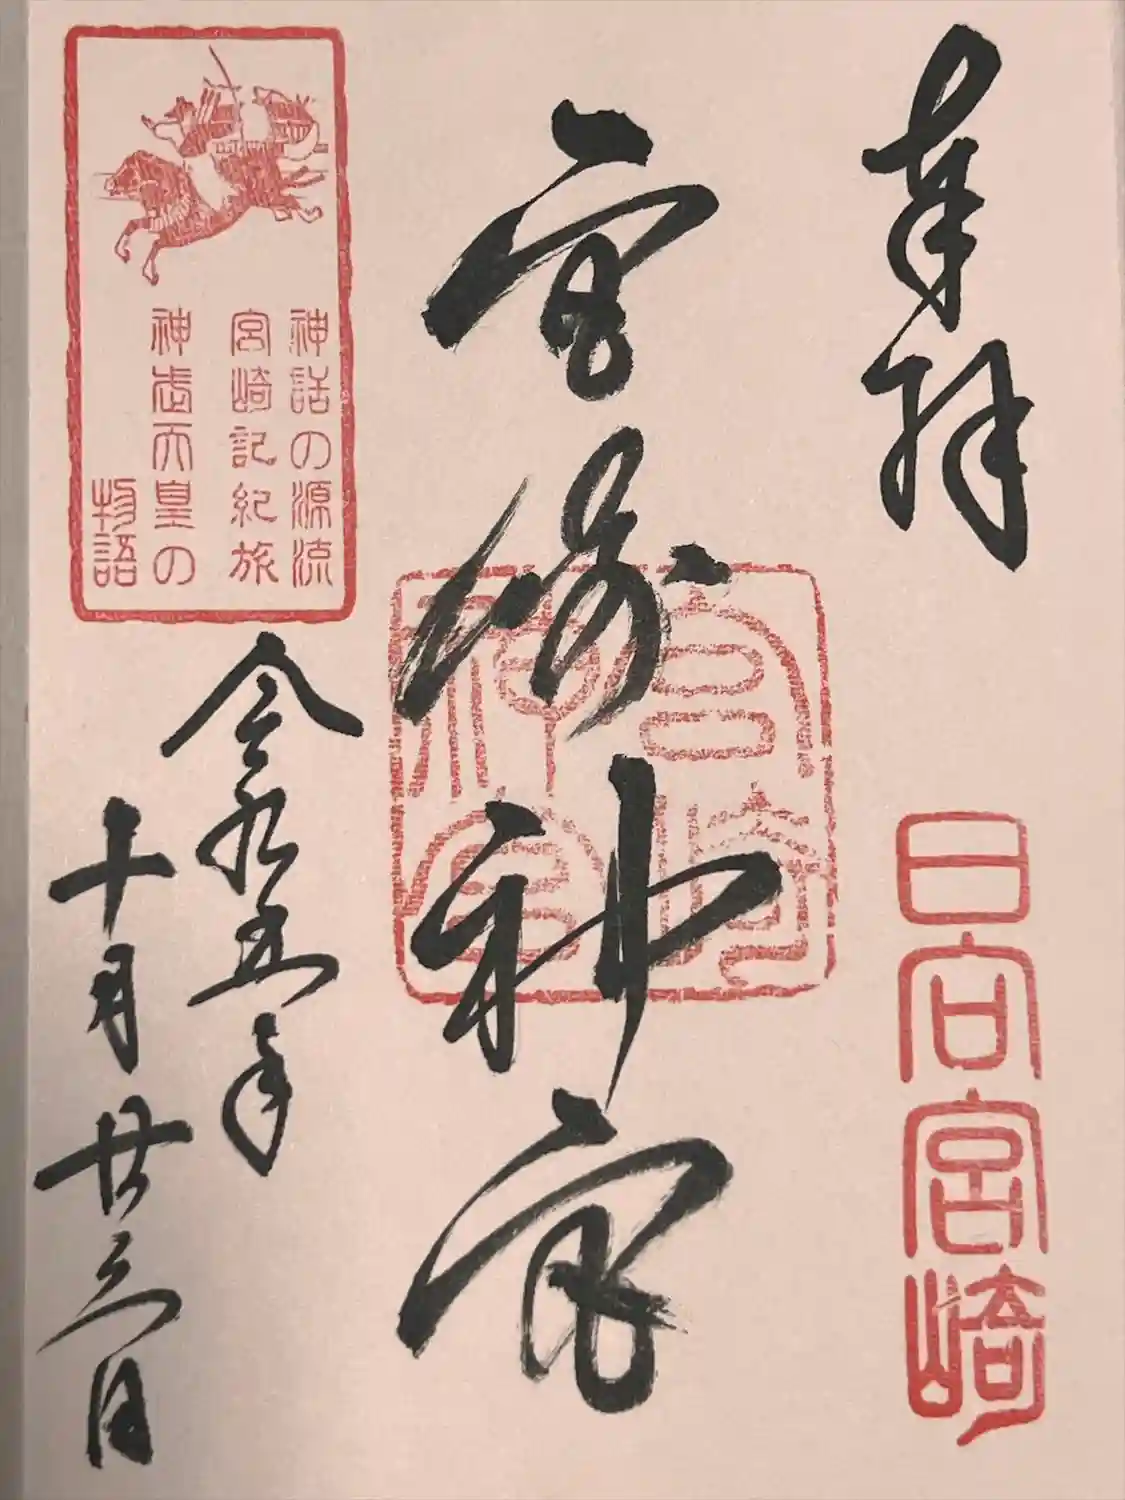 奉拝
日向宮崎
宮崎神宮
宮崎神宮
神話の源流
宮崎記紀旅
神武天皇の
物語
令和五年
十月廿三日